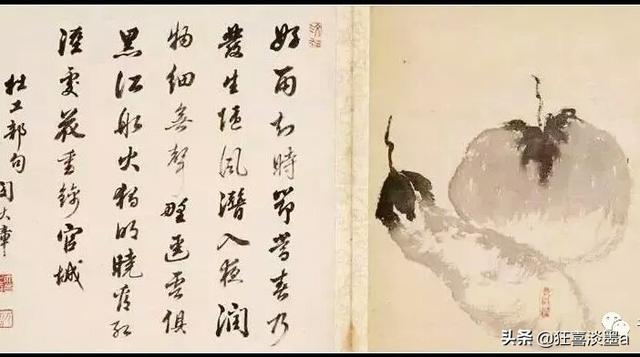 好雨知時節當春乃
發生隨風潛入夜潤
物細無聲野逕雲俱
黑江船火獨明曉看紅
濕處花重錦官城
杜工部句
头条 @狂喜淡墨a